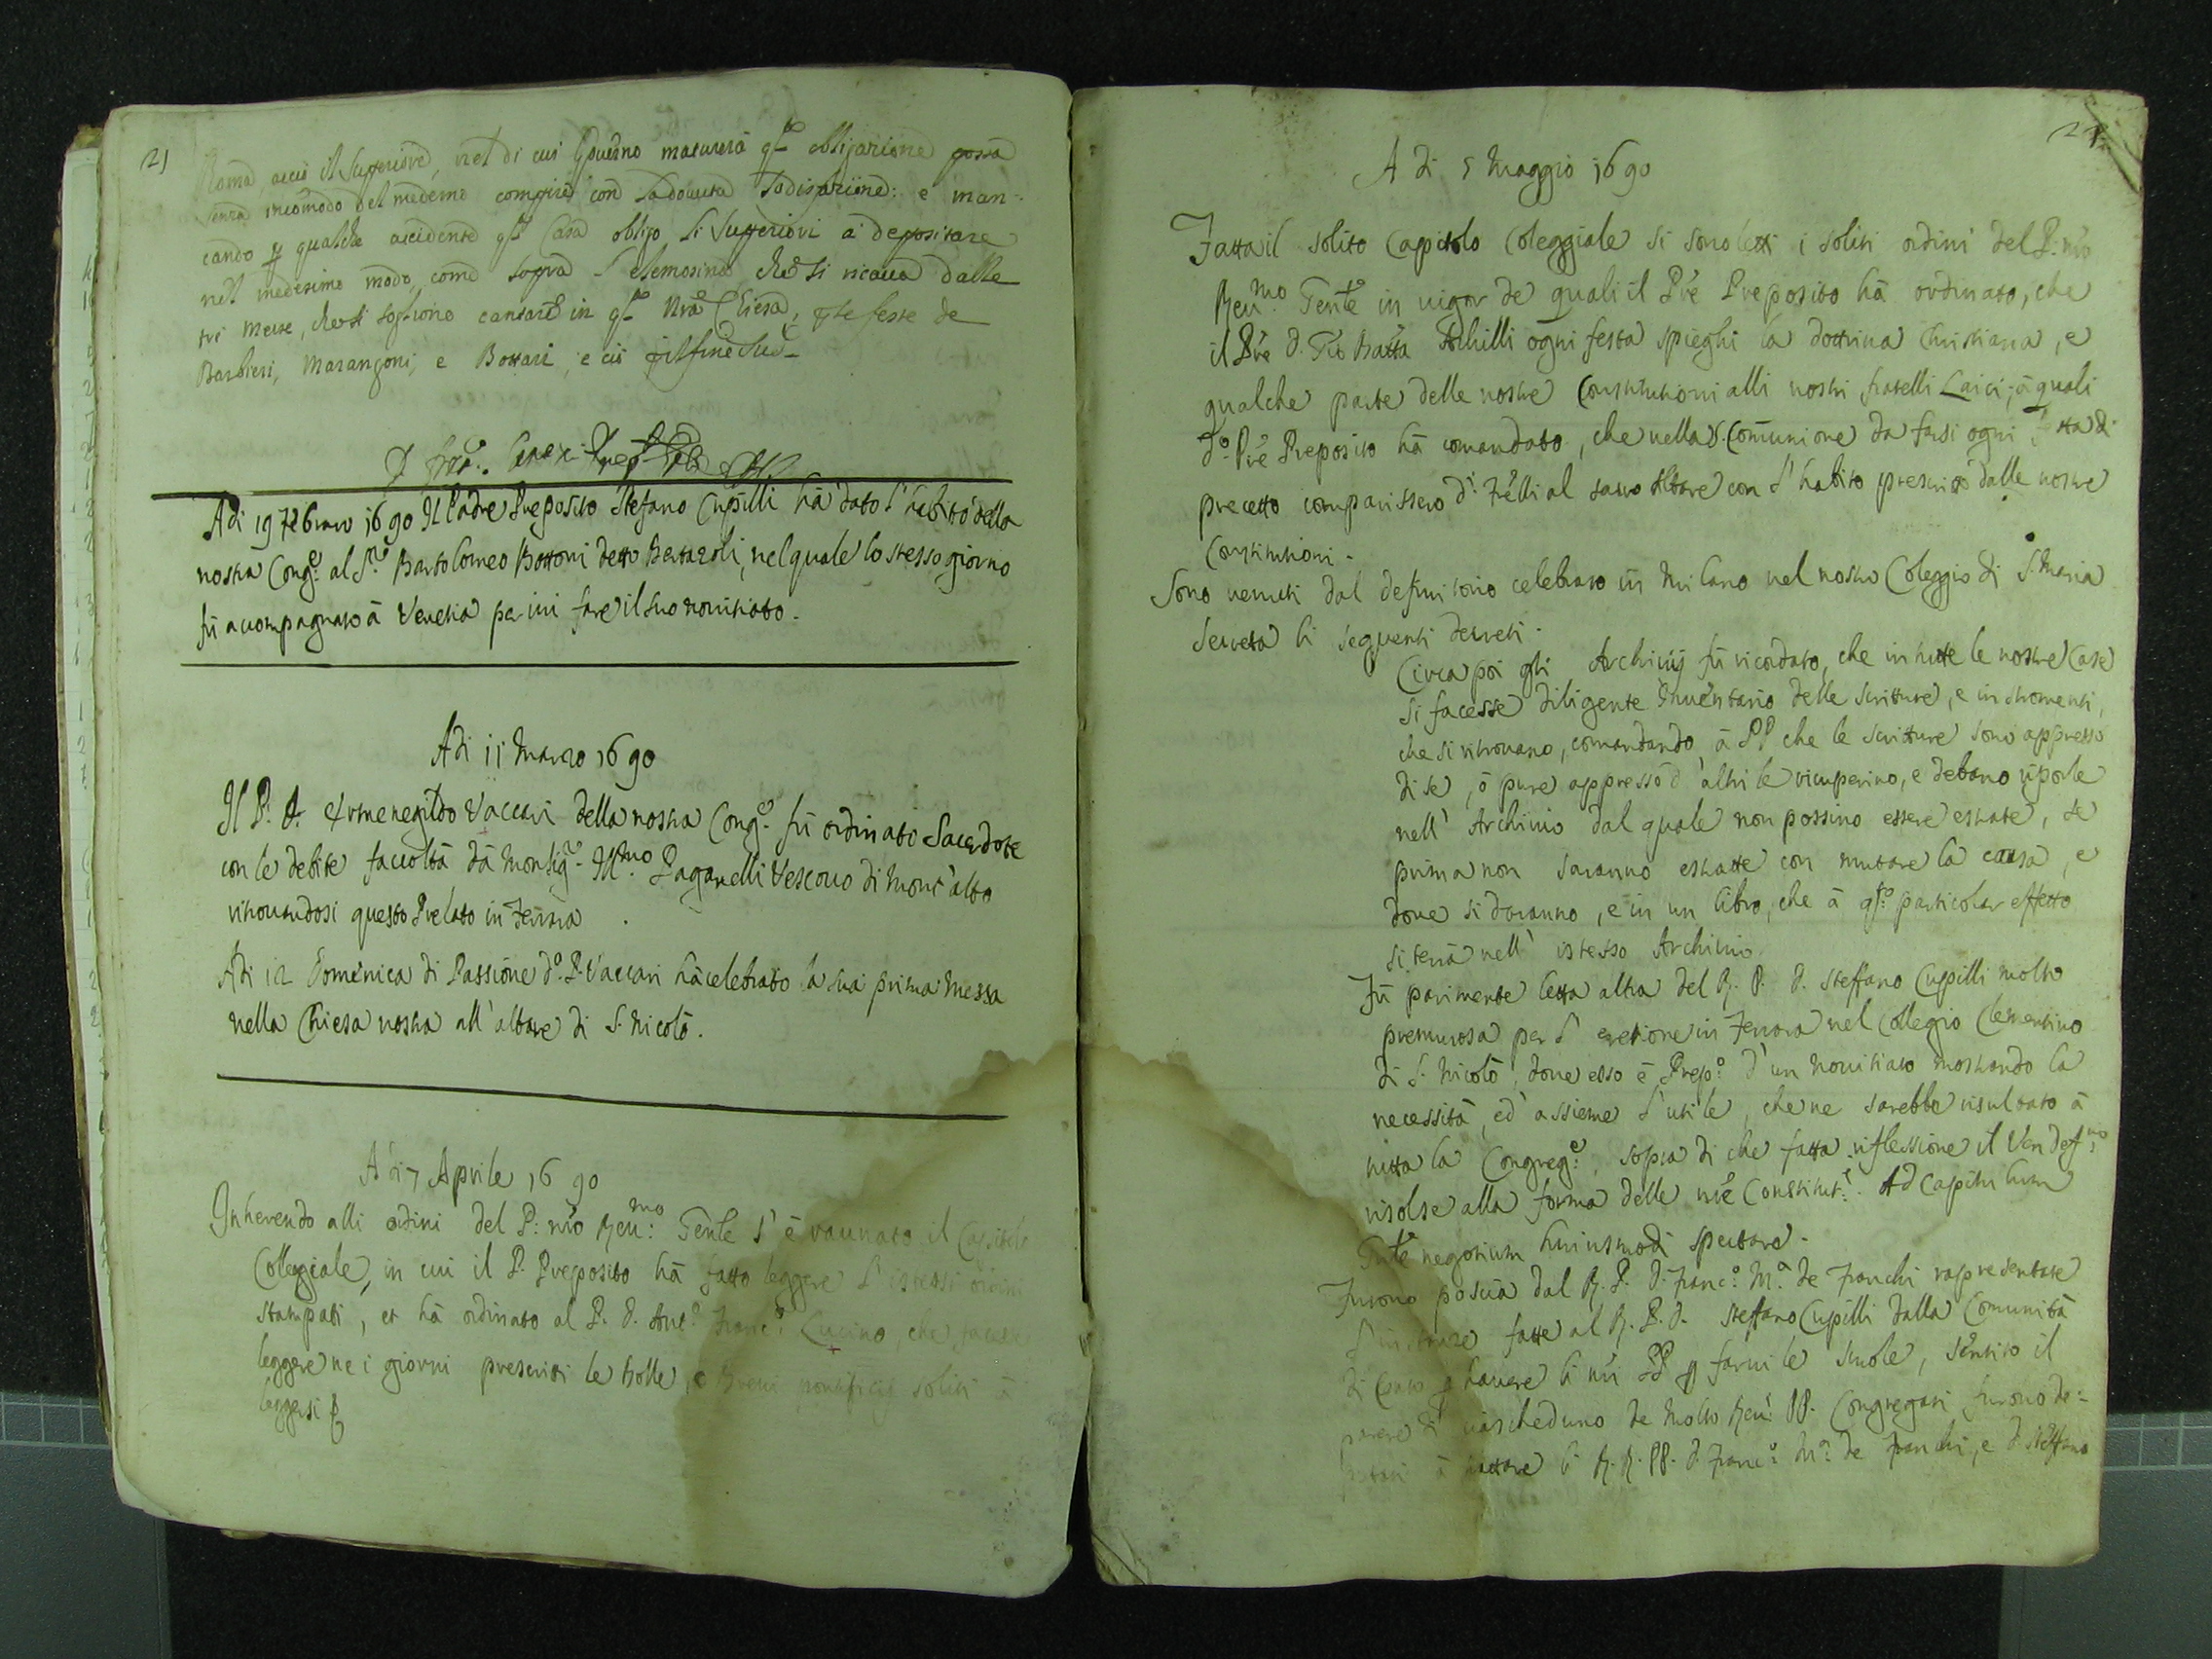 21
Roma, acciò il Superiore, nel di cui Governo maturerà q.ta obligatione possa
senza incomodo del medemo compire con la dovuta sodisfatione: e man-
cando p qualche accidente q.ta Casa obligo li Superiori à depositare
nel medesimo modo, come sopra l'elemosine, che si ricava dalle
tri Messe, che si sogliono cantare in q.ta Nrã Chiesa, p le feste de
Barbieri, Marangoni, e Bottari, e ciò
Adi 19 Febraro 1690 Il Padre Preposito Stefano Cupilli hà dato l'habito della
nostra Cong.e al S.re Bartolomeo Bottoni detto Bertazoli, nel quale lo stesso giorno
fù acompagnato à Venetia per ivi fare il suo novitiato.
Adi 11 Marzo 1690
Il P. D. Ermenegildo Vaccari della nostra Cong.e fù ordinato Sacerdote
con le debite faccoltà dà Monsig.re Ill.mo Paganelli Vescovo di Mont'alto
ritrovandosi questo Prelato in Ferrara
Adi 12 Domenica di Passione d.o P. Vaccari hà celebrato la sua prima Messa
nella Chiesa nostra all'altare di S. Nicolò.
A di 7 Aprile 1690
Inherendo alli ordini del P: nrõ Reu.mo Gen̄le s'è raunato il Capitolo
Collegiale, in cui il P. Preposito hà fatto leggere l'istessi ordini
stampati, et hà ordinato al P. D. Ant.o Franc.o Lucino, che facesse
leggere ne i giorni prescritti le bolle, e Brevi pontificij soliti à
leggersi
A di 5 Maggio 1690
Fatta il solito Capitolo Coleggiale si sono letti i soliti ordini del P: nrõ
Reu.mo Gen̄le in vigor de quali il Prẽ Preposito hà ordinato, che
il Prẽ D. Gio Batta Achilli ogni festa spieghi la dottrina Christiana, e
qualche parte delle nostre Constitutioni alli nostri fratelli Laici; à quali
d.o Prẽ Preposito hà comandato, che nella S. Comunione da farsi ogni festa di
precetto comparissero d.i Frẽlli al sacro Altare con l'habito prescritto dalle nostre
Constitutioni.
Sono venuti dal definitorio celebrato in Milano nel nostro Coleggio di S. Maria
Secreta li seguenti decreti.
Circa poi gli Archivij fù ricordato, che in tutte le nostre Case
si facesse diligente Inventario delle scritture, e instromenti,
che si ritrovano, comandando à PP che le scritture sono appresso
di se, ò pure appresso d'altri le ricuperino, e debano riporle
nell'Archivio dal quale non possino essere estratte, se
prima non saranno estratte con mutare la causa, e
dove si doranno, e in un libro, che à q.to particolar effetto
si terrà nell'istesso Archivio
Fù parimente letta altra del R. P. D. Steffano Cupilli molto
premurosa per l'eretione in Ferrara nel Collegio Clementino
di S. Nicolò, dove esso è Prep.o d'un Novitiato mostrando la
necessità, ed assieme l'utile, che ne sarebbe risultato à
tutta la Congreg.e, sopra di che fatta riflessione il Ven Def.rio
risolse alla forma delle nrẽ Constitut.i Ad Capitulum
Gn̄le negotium huiusmodi spectare.
Furono poscia dal R. P. D. Franc.o M.a de Franchi rapresentate
l'instanze fatte al R. P. D. Steffano Cupilli dalla Comunità
di Cento p havere li nrĩ PP p farvi le scuole, sentito il
parere di ciascheduno de Molto Reu.i PP. Congregati furono de=
putati à trattare li R. R. PP. D. Franc.o M.a de Franchi, e D. Steffano